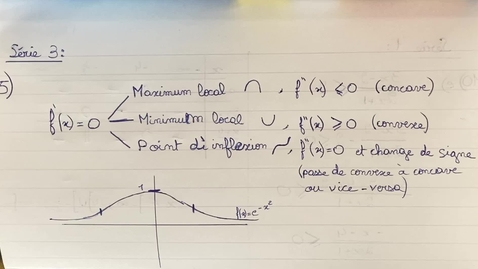 Série 3:
5)
Maximum local ∩ , f''(x) ⩽ 0 (concave)
f'(x) = 0 Minimum local ∪ , f''(x) ⩾ 0 (convexe)
Point d'inflexion , f''(x) = 0 et change de signe
(passe de convexe à concave
ou vice-versa)
1
f(x) = e^{-x^2}